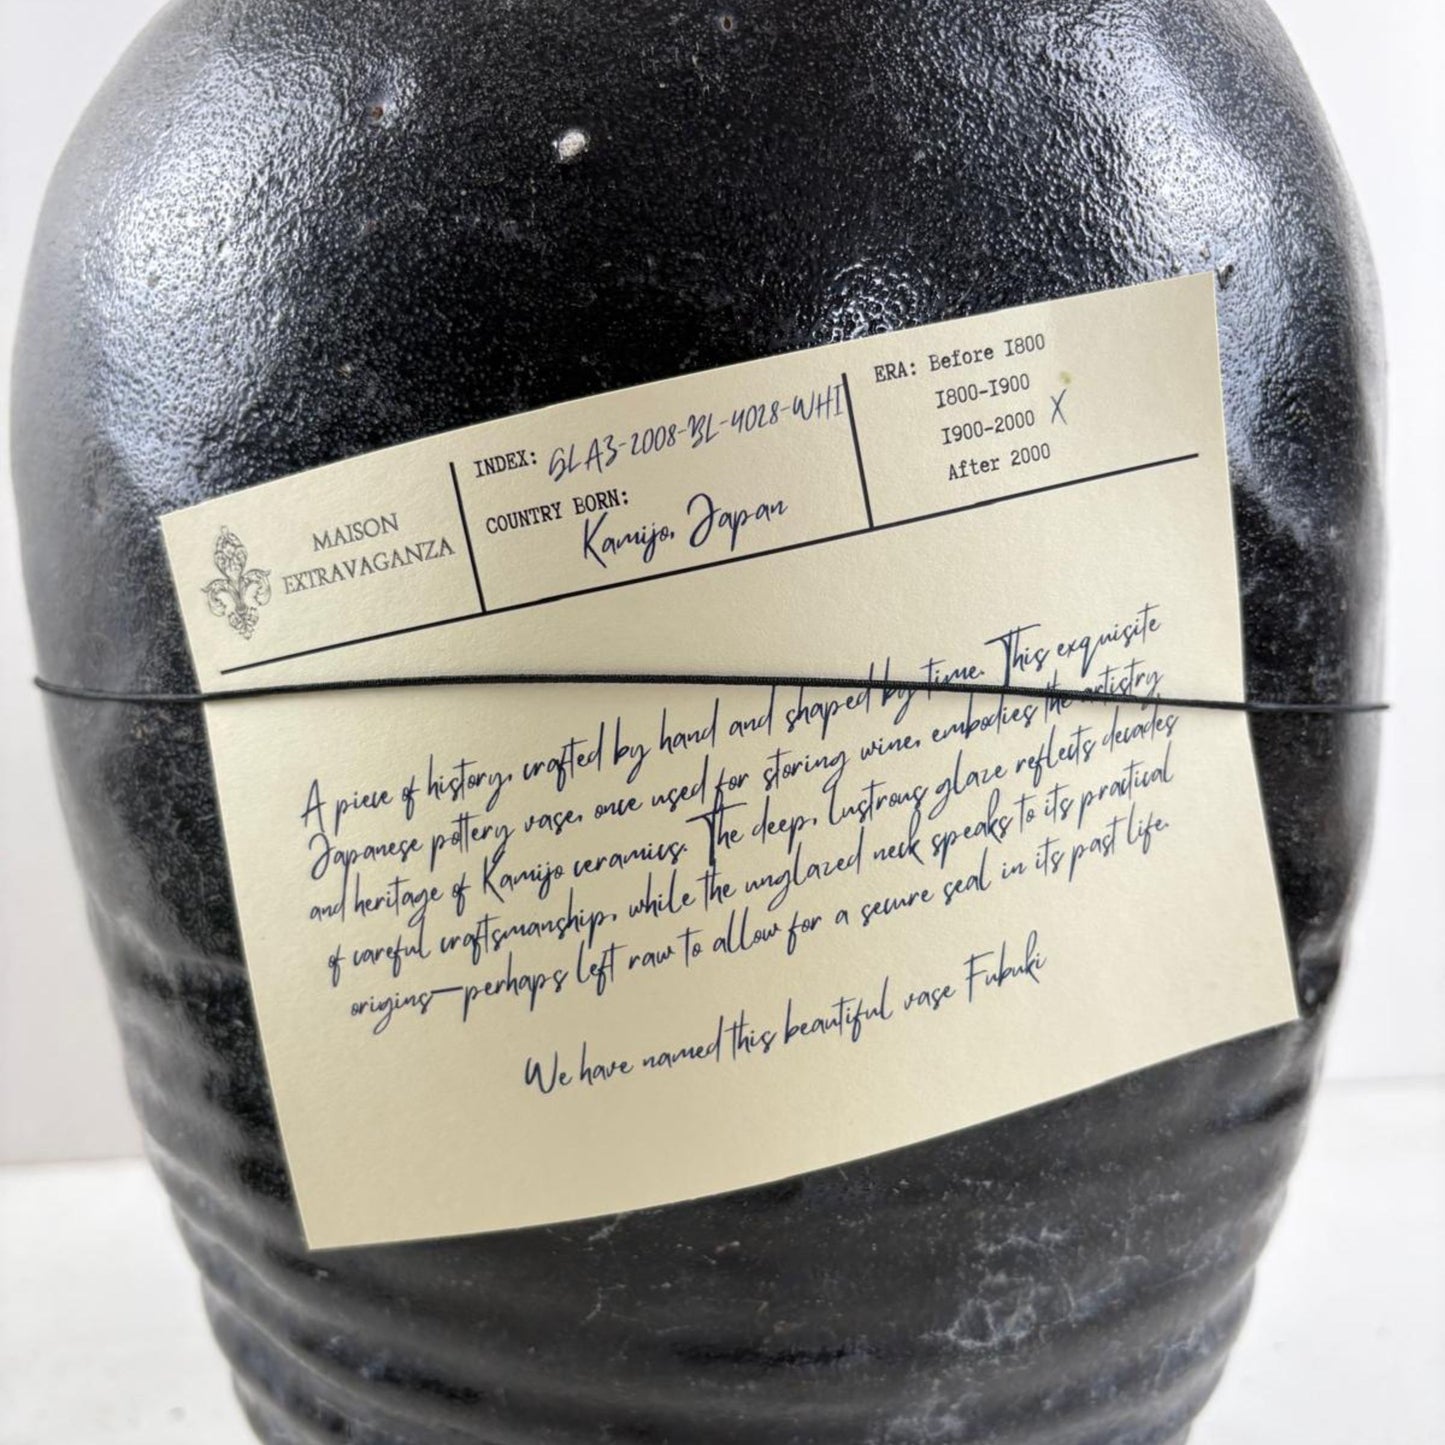 MAISON
EXTRAVAGANZA
INDEX: GLA3-2008-BL-4028-WHI
COUNTRY BORN:
Kamijo, Japan
ERA: Before 1800
1800-1900
1900-2000 X
After 2000
A piece of history, crafted by hand and shaped by time. This exquisite
Japanese pottery vase, once used for storing wine, embodies the artistry
and heritage of Kamijo ceramics. The deep, lustrous glaze reflects decades
of careful craftsmanship, while the unglazed neck speaks to its practical
origins—perhaps left raw to allow for a secure seal in its past life.
We have named this beautiful vase Fubuki